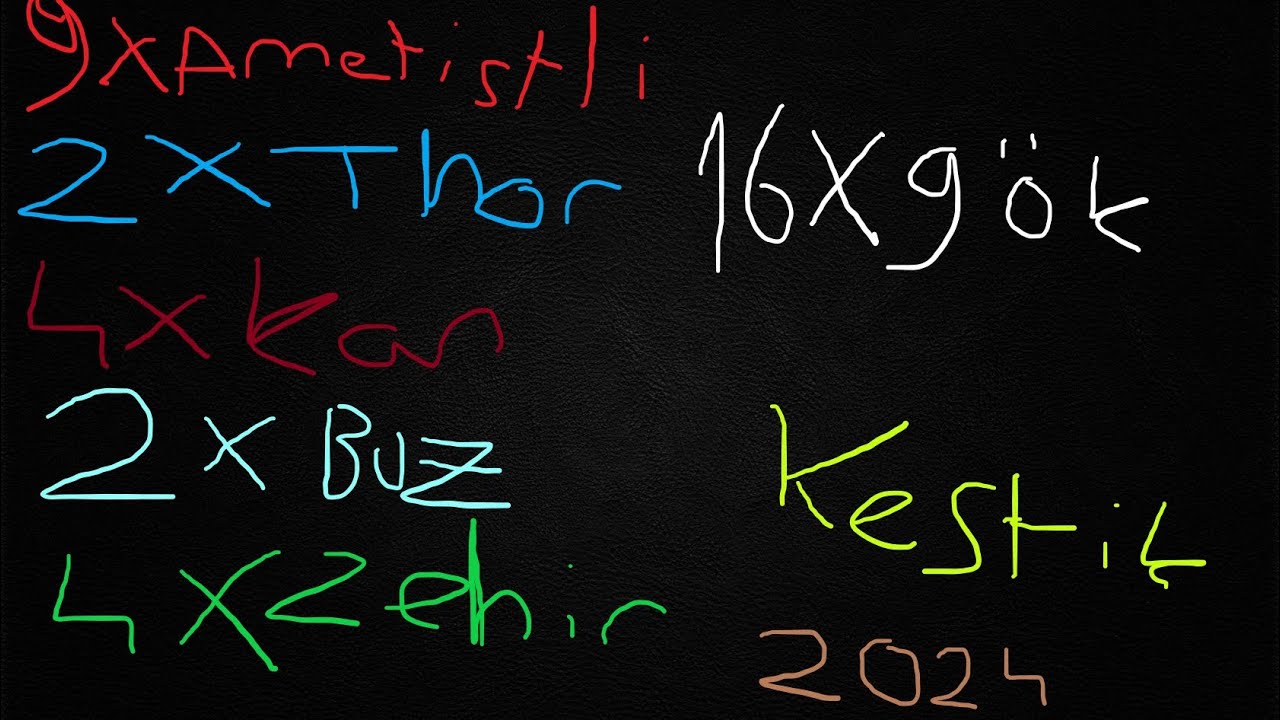 9xAmetistli
2xThor
4xKan
2xBUZ
4xZehir
16xgök
Kestik
2024